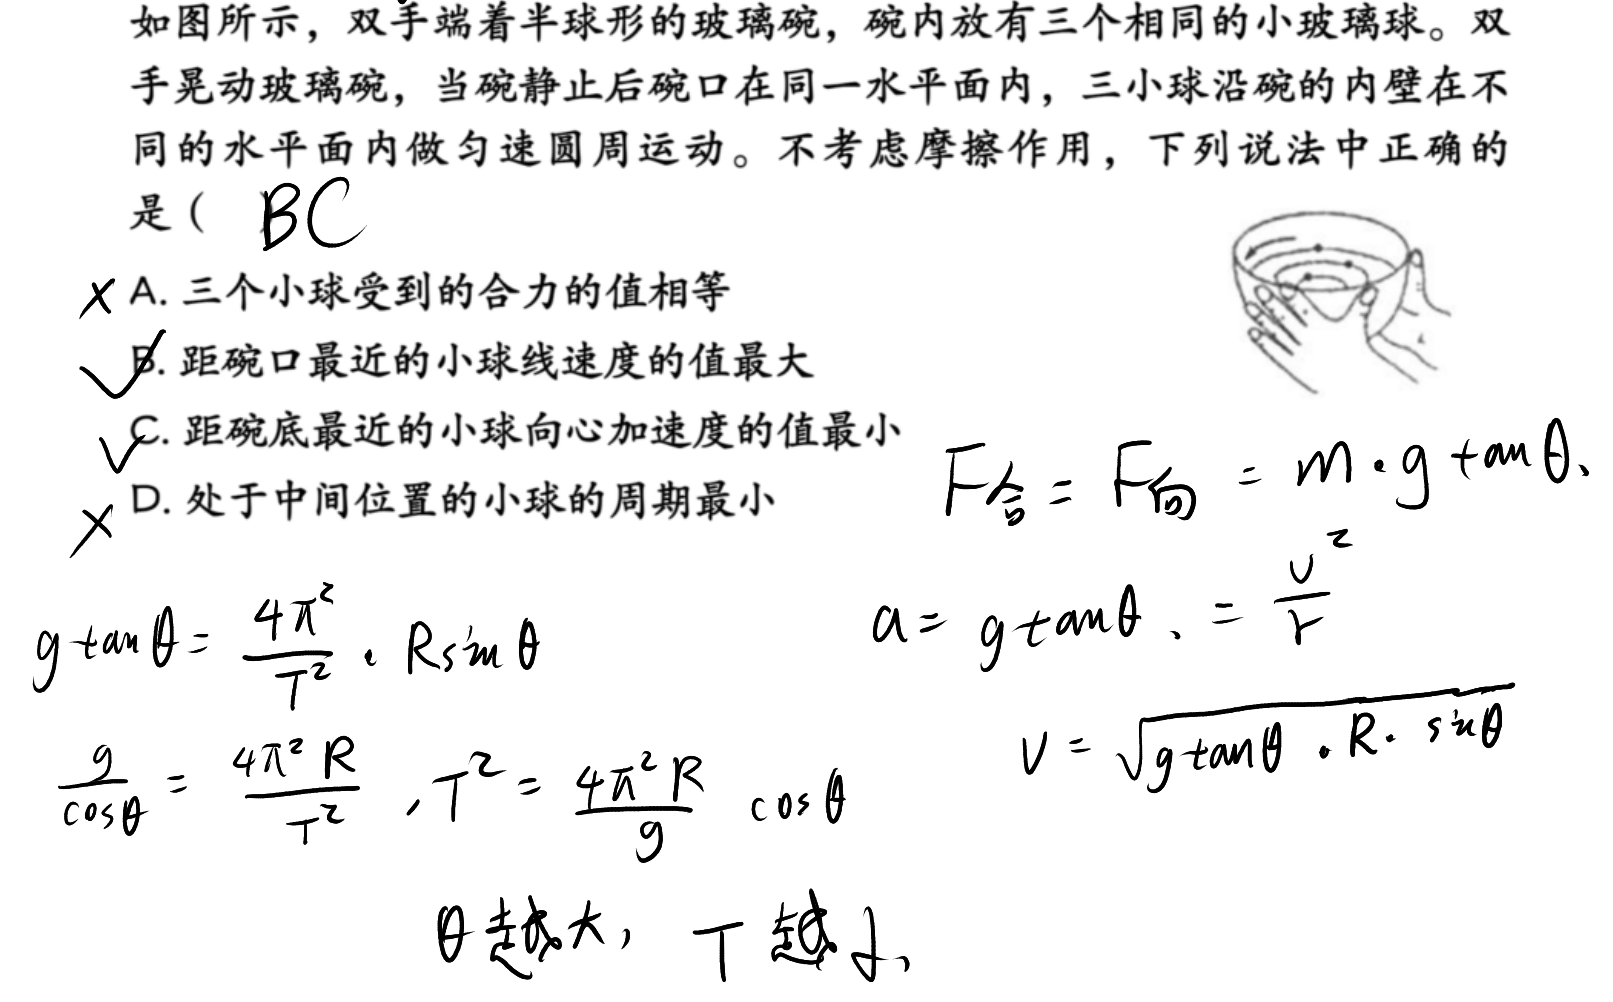 如图所示，双手端着半球形的玻璃碗，碗内放有三个相同的小玻璃球。双
手晃动玻璃碗，当碗静止后碗口在同一水平面内，三小球沿碗的内壁在不
同的水平面内做匀速圆周运动。不考虑摩擦作用，下列说法中正确的
是（ BC
× A. 三个小球受到的合力的值相等
√ B. 距碗口最近的小球线速度的值最大
√ C. 距碗底最近的小球向心加速度的值最小
× D. 处于中间位置的小球的周期最小
F合 = F向 = m·g tanθ、
a = g tanθ、= v²/r
v = √(g tanθ · R · sinθ)
g tanθ = 4π²/T² · R sinθ
g/cosθ = 4π²R/T² , T² = 4π²R/g cosθ
θ越大，T越小、